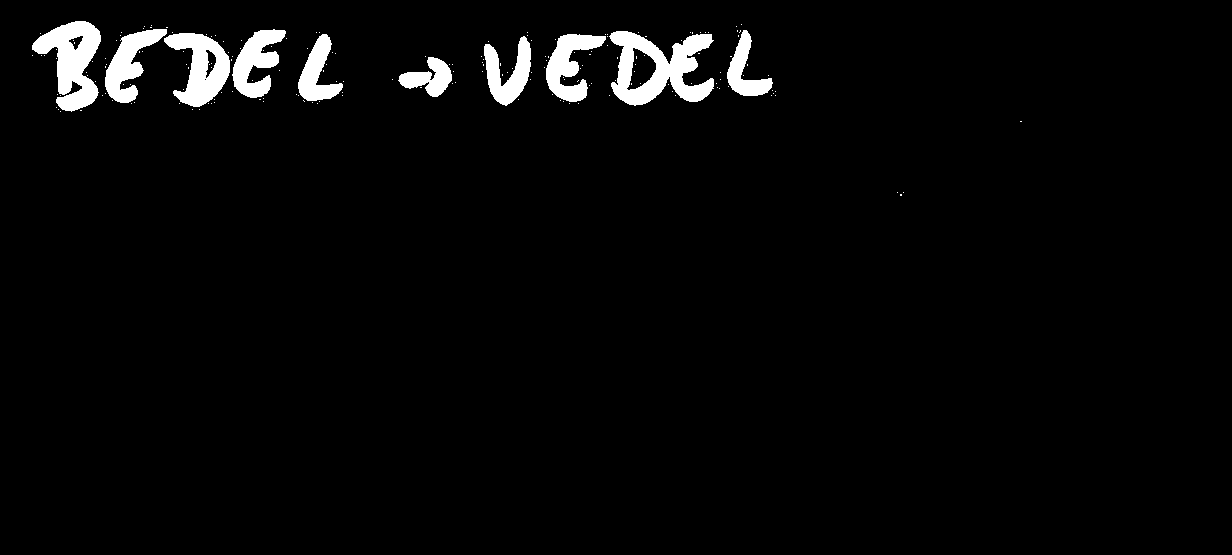 BEDEL → VEDEL